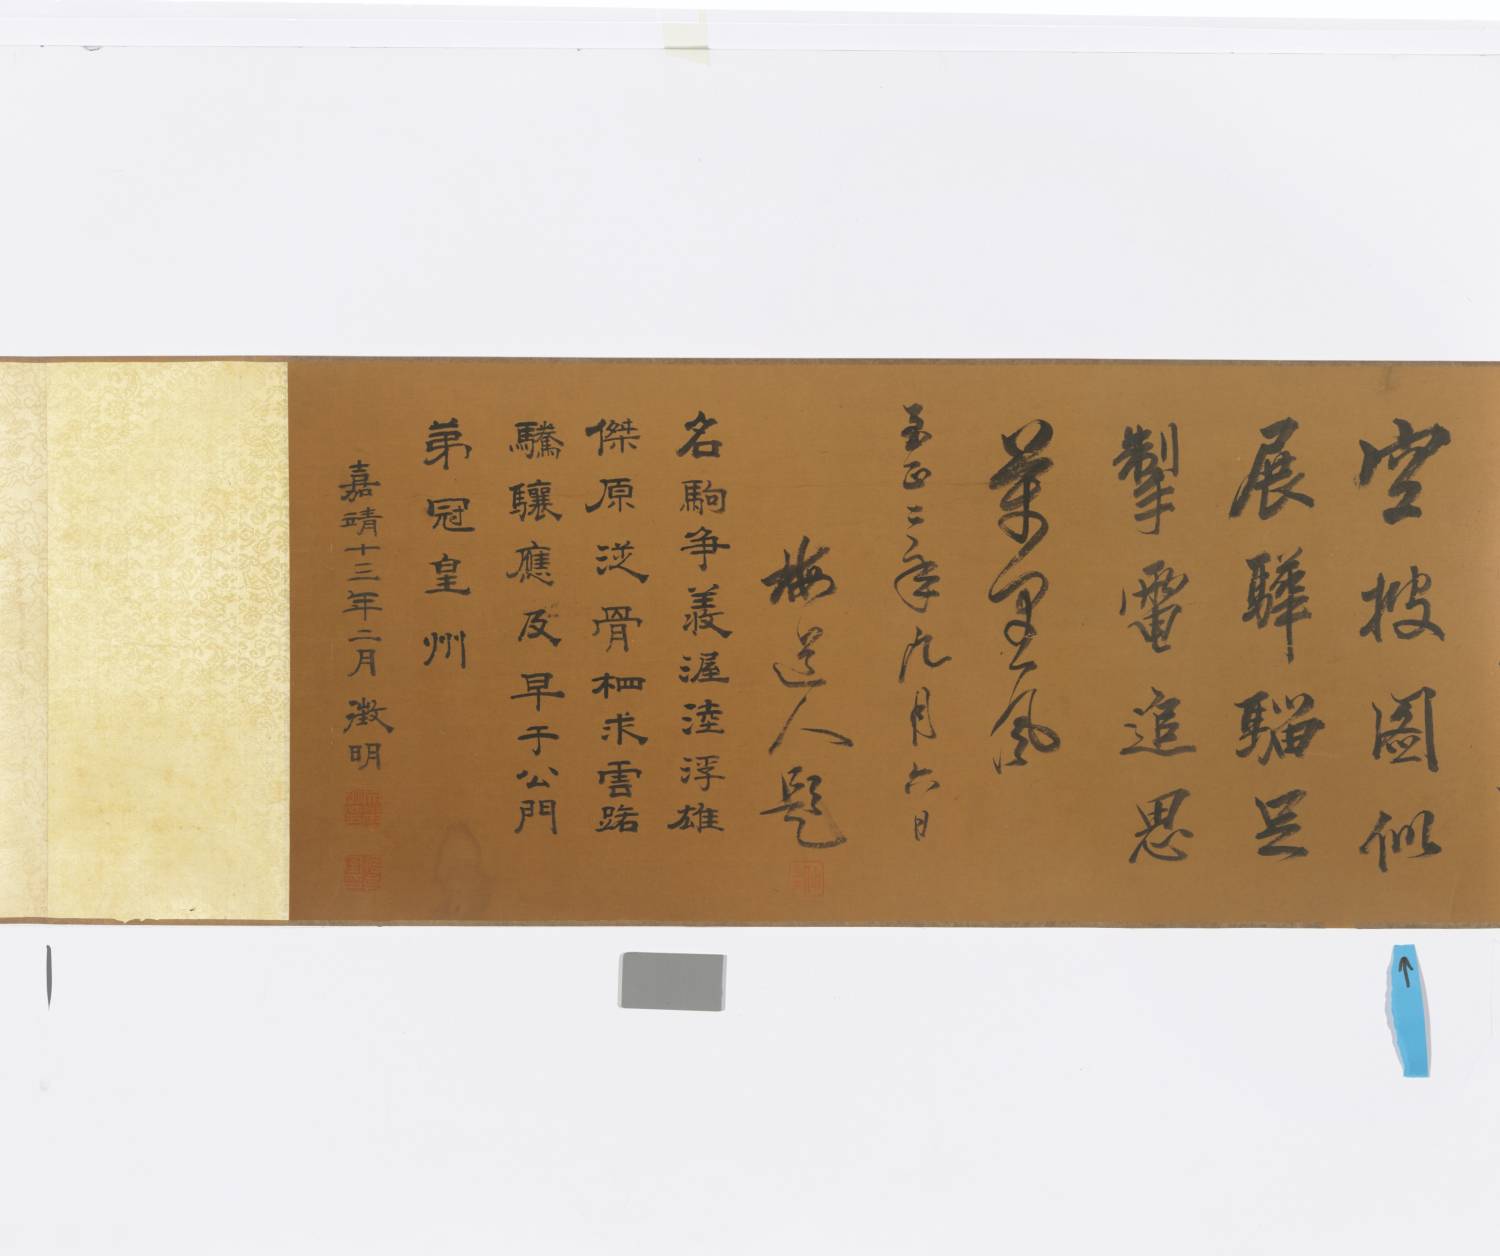 空披圖似
展驊騮足
掣電追思
萬里風
至正二年九月六日
梅道人題
名駒爭羨渥洼浮雄
傑原從骨相求雲路
驣驤應及早于公門
苐冠皇州
嘉靖十三年二月徵明